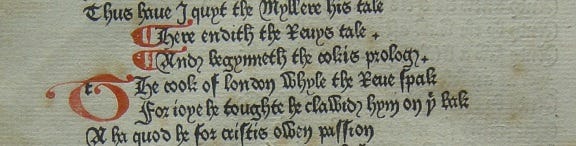 Thus haue J quyt the Myllere his tale
¶ Here endith the Reuys tale .
¶ And begynneth the cokis prolog .
The cook of london whyle the Reue spak
For ioye he toughte he clawid hym on yͤ bak
A ha quod he for cristis owen passion